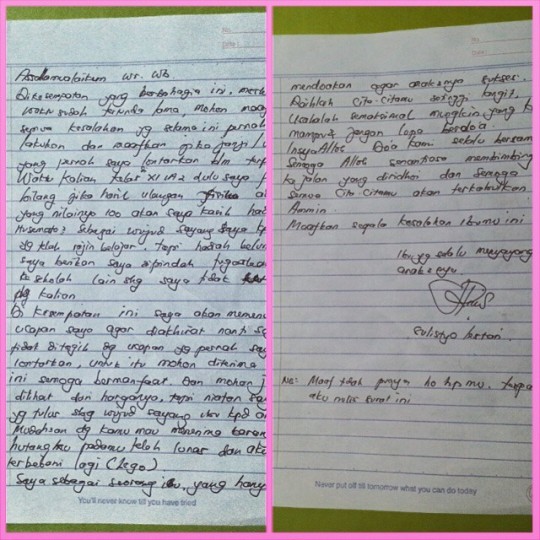 Assalamualaikum Wr. Wb.
Dikesempatan yang berbahagia ini,
sudah lama, mohon
semua kesalahan yg selama ini pernah
lakukan dan maafkan jika janji
yang pernah saya lontarkan blm
Waktu kalian kelas XI IA2 dulu saya
bilang jika hasil ulangan
yang nilainya 100 akan saya kasih
Sebagai wujud sayang saya
yg rajin belajar. tapi hadiah belum
saya berikan saya dipindah tugaskan
ke sekolah lain shg saya tidak
dg kalian
Di kesempatan ini saya akan
ucapan saya agar diakhirat nanti
tidak ditagih dg ucapan yg pernah
lontarkan, untuk itu mohon diterima
ini semoga bermanfaat. Dan mohon
dilihat dari harganya, tapi niatan
yg tulus sbg wujud sayang ibu kpd
dg kamu mau menerima
hutangku padamu telah lunas dan
terbebani lagi (lega)
Saya sebagai seorang ibu, yang hanya
You'll never know till you have tried
No.
Date
mendoakan agar anaknya sukses.
Raihlah cita-citamu setinggi langit,
Usahalah semaksimal mungkin yang
mampu & jangan lupa berdo'a
InsyaAlloh Do'a kami selalu
Semoga Alloh senantiasa membimbing
ke jalan yang diridhoi dan semoga
semua cita-citamu akan terkabulkan
Ammin.
Maafkan segala kesalahan ibumu ini
Ibu yg selalu
anak2nya.
Sulistyo
Maaf tidak punya no hp mu,
aku nulis surat ini
Never put off till tomorrow what you can do today